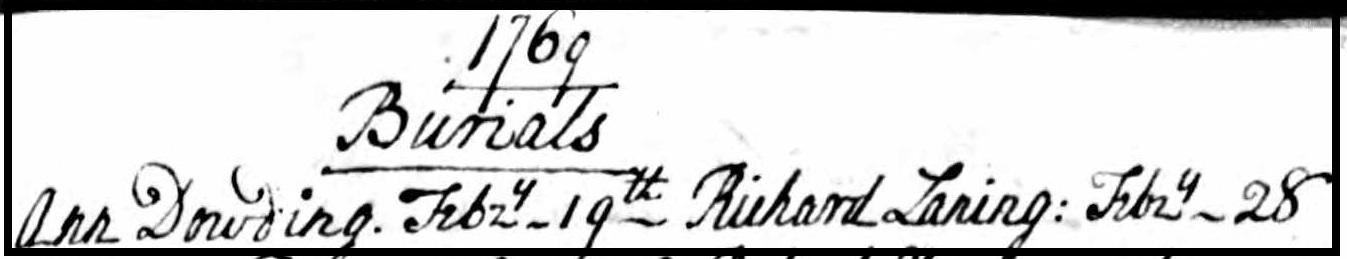 1769
Burials
Ann Dowding. Febry - 19th Richard Laning: Febry - 28